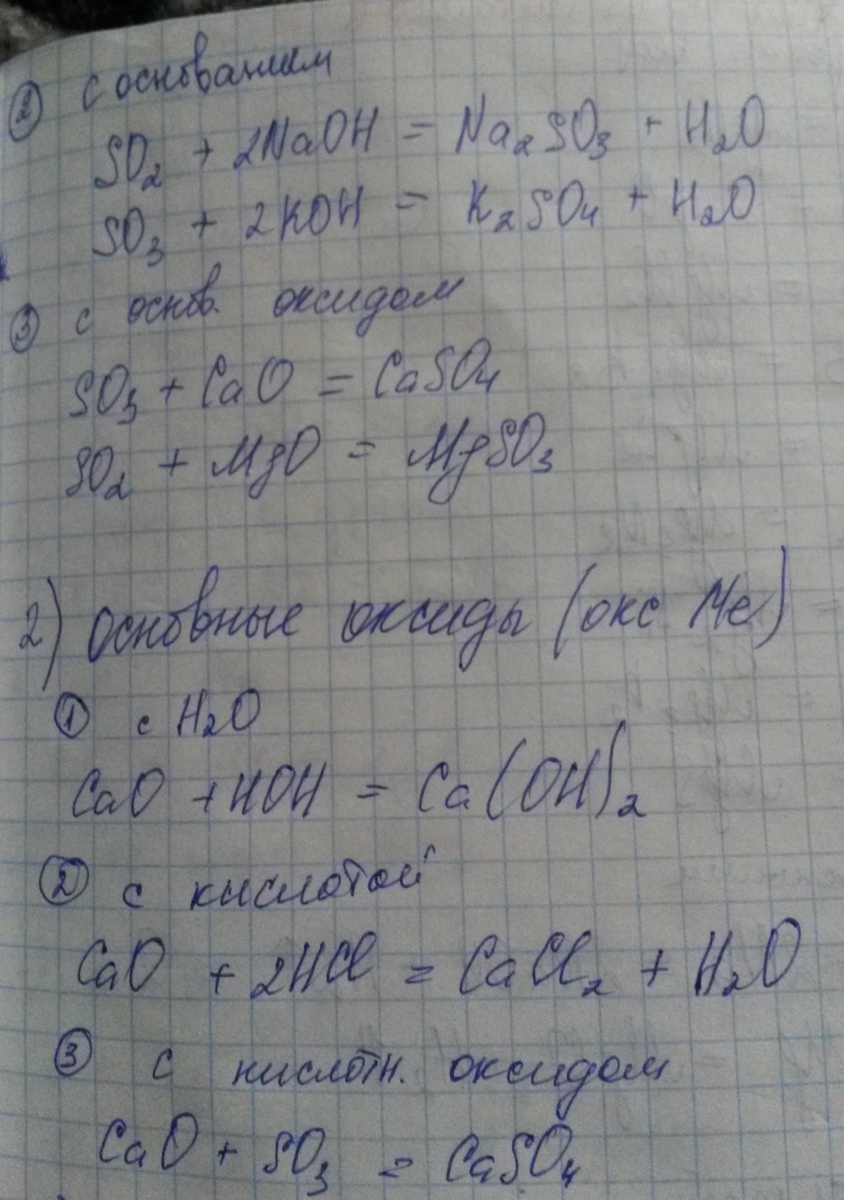 ② с основанием
SO₂ + 2NaOH = Na₂SO₃ + H₂O
SO₃ + 2KOH = K₂SO₄ + H₂O
③ с основ. оксидом
SO₃ + CaO = CaSO₄
SO₂ + MgO = MgSO₃
2) Основные оксиды (окс Ме)
① с H₂O
CaO + HOH = Ca(OH)₂
② с кислотой
CaO + 2HCl = CaCl₂ + H₂O
③ с кислотн. оксидом
CaO + SO₃ = CaSO₄